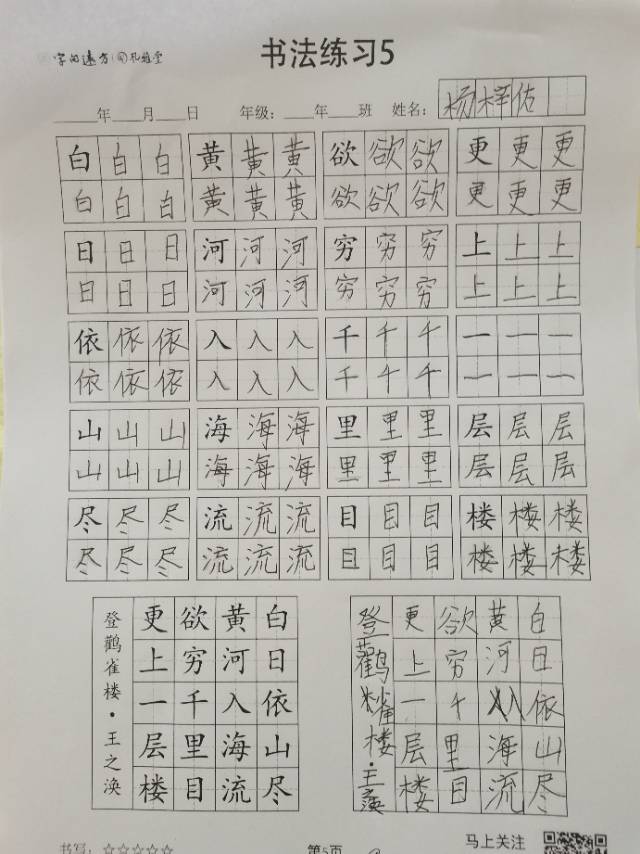 字的遠方
书法练习5
____年___月___日 年级：___年___班 姓名：杨梓佑
白白白 黄黄黄 欲欲欲 更更更
白白白 黄黄黄 欲欲欲 更更更
日日日 河河河 穷穷穷 上上上
日日日 河河河 穷穷穷 上上上
依依依 入入入 千千千 一一一
依依依 入入入 千千千 一一一
山山山 海海海 里里里 层层层
山山山 海海海 里里里 层层层
尽尽尽 流流流 目目目 楼楼楼
尽尽尽 流流流 目目目 楼楼楼
白日依山尽
黄河入海流
欲穷千里目
更上一层楼
登鹳雀楼·王之涣
白日依山尽
黄河入海流
欲穷千里目
更上一层楼
登鹳雀楼·王之涣
书写：☆☆☆☆☆
第5页
马上关注